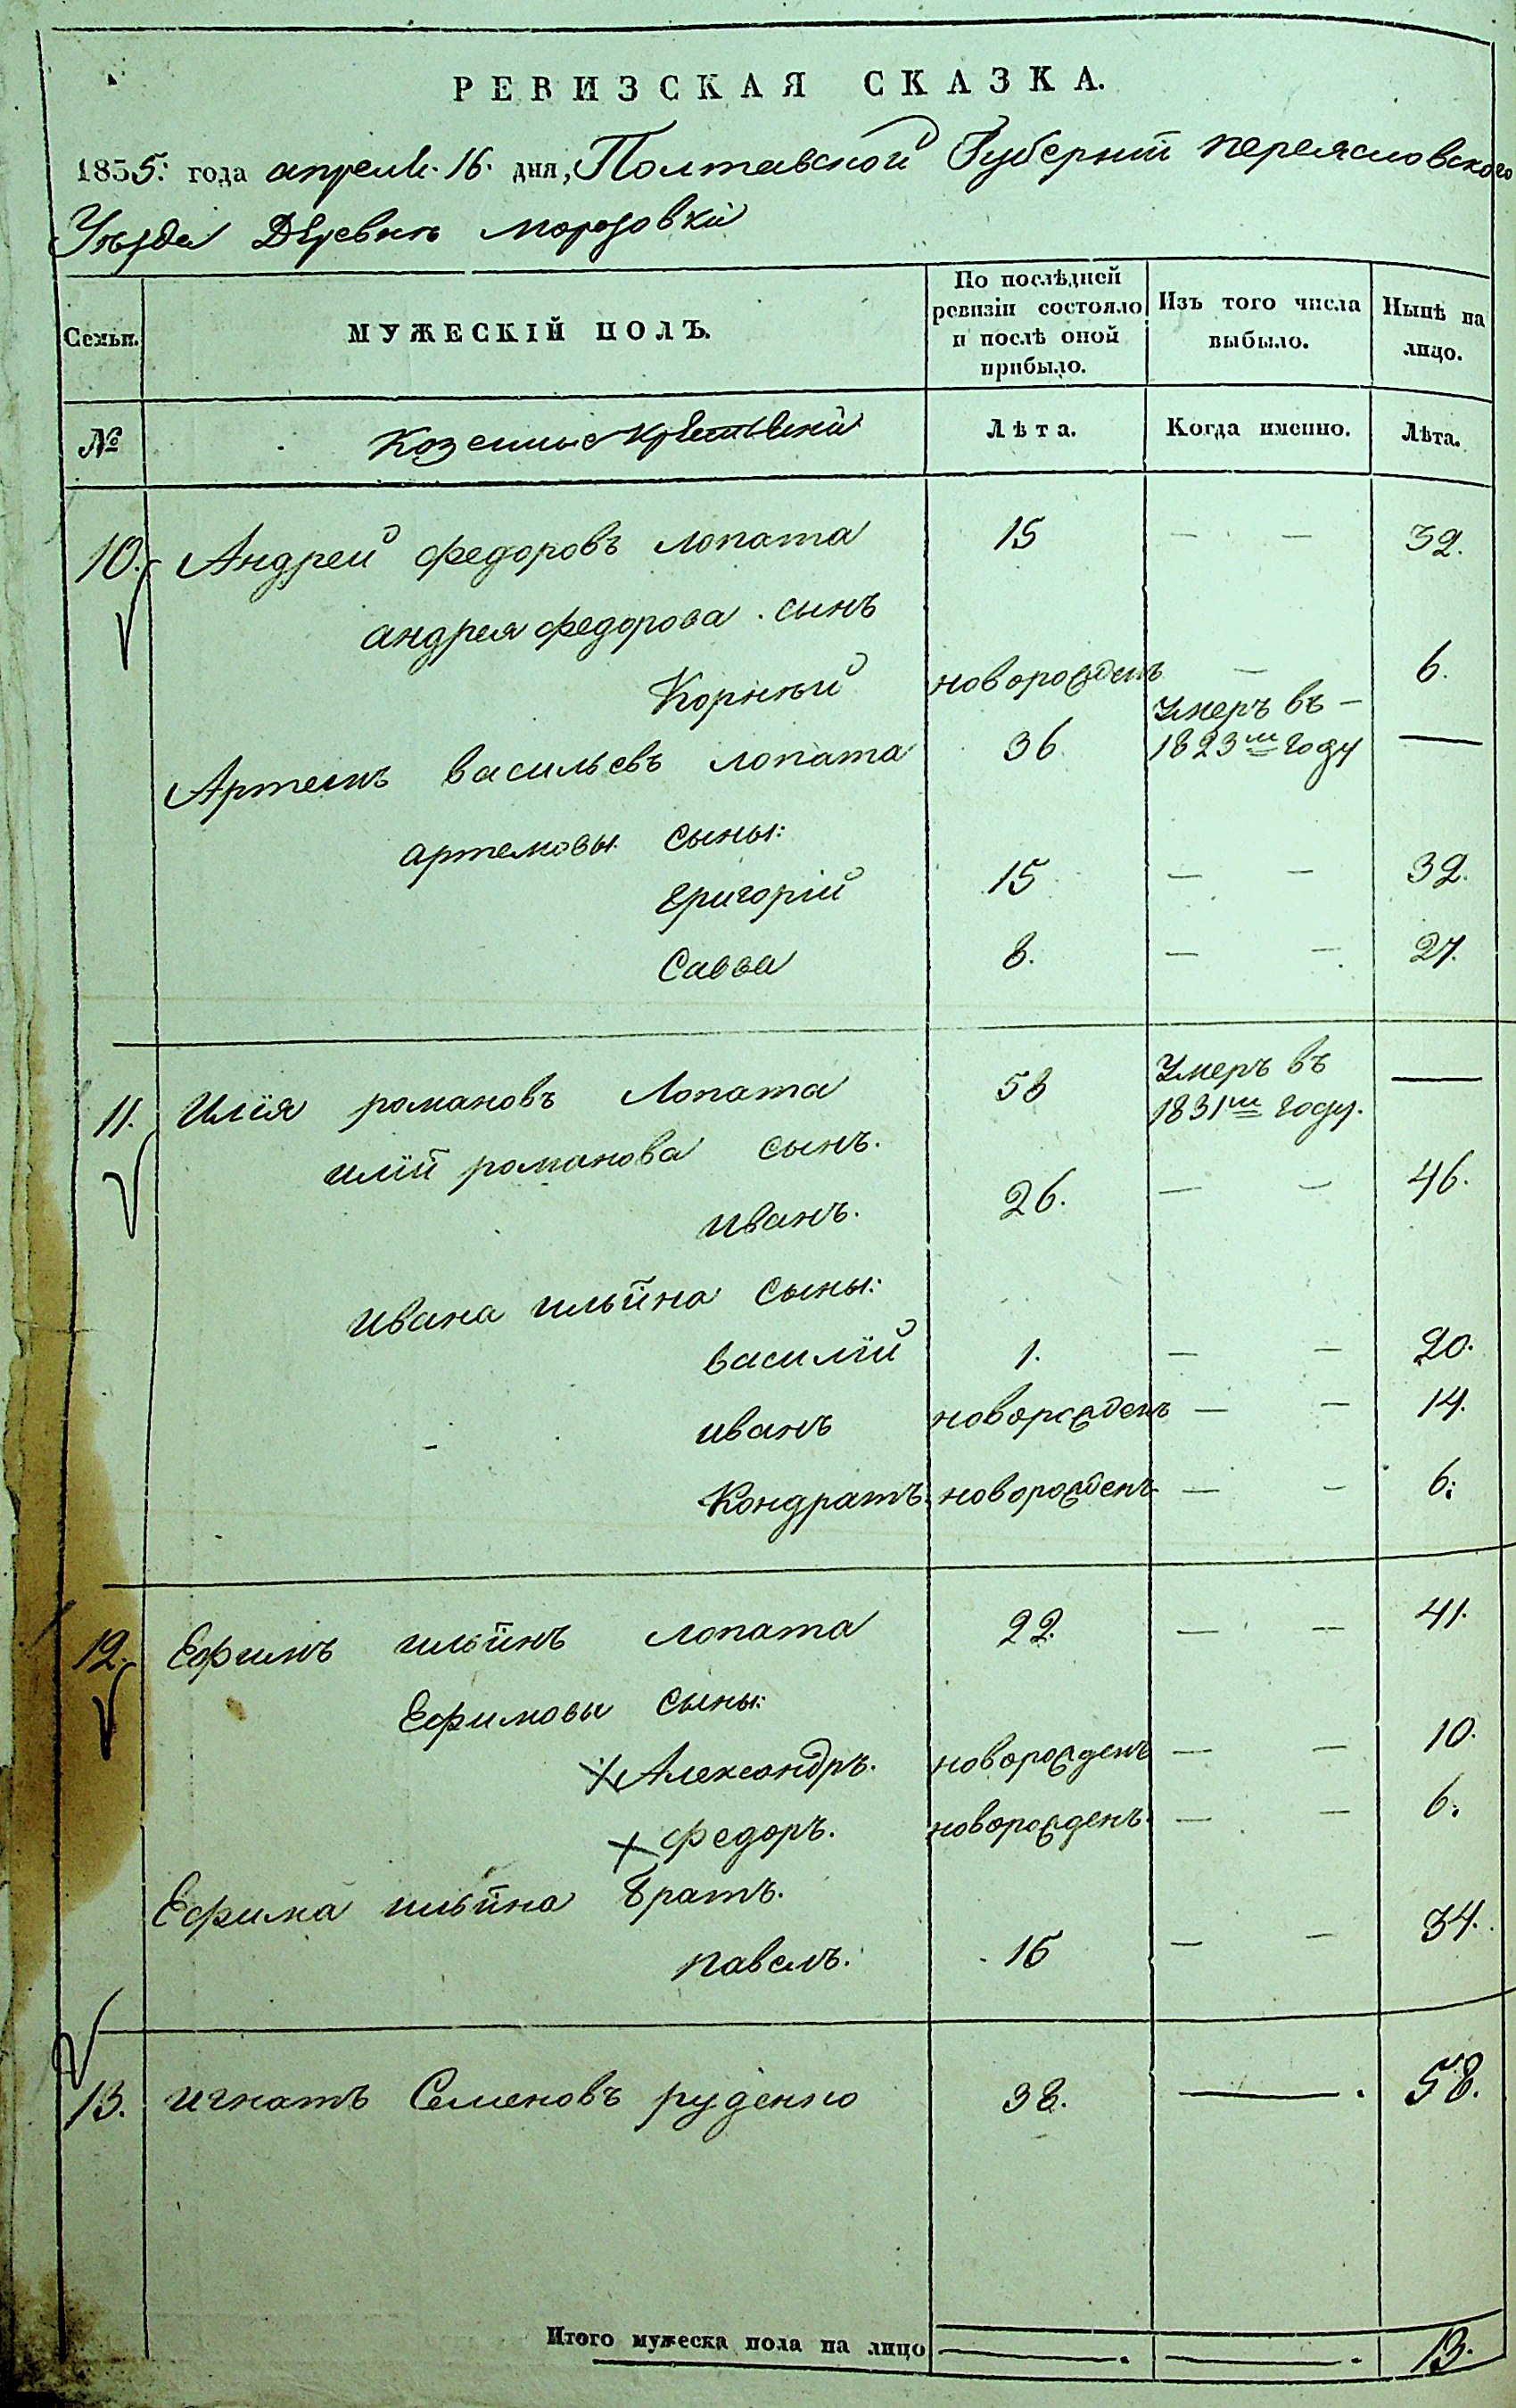 РЕВИЗСКАЯ СКАЗКА.
1835: года апреля. 16. дня, Полтавской Губерний переясловского
Уѣзда Деревнѣ морозовкй
Семьи.
МУЖЕСКІЙ ПОЛЪ.
По послѣдней ревизіи состояло и послѣ оной прибыло.
Изъ того числа выбыло.
Нынѣ на лицо.
№ Козенные крестьяни Лѣта. Когда именно. Лѣта.
10. Андрей федоровъ лопата 15 — — 32.
андрея федорова сынъ
Корнѣй новорожденъ — 6.
Артемъ васильевъ лопата 36 Умеръ въ 1823м году —
артемовы сыны:
григорій 15 — — 32.
Савва 8. — — 27.
11. Илія романовъ Лопата 58 Умеръ въ 1831м году. —
илій романова сынъ.
иванъ. 26. — — 46.
ивана ильйна сыны:
василій 1. — — 20.
иванъ новорожденъ — — 14.
Кондратъ. новорожденъ — — 6:
12. Ефимъ ильинъ лопата 22. — — 41.
Ефимовы сыны:
× Александръ. новорожденъ — — 10.
× федоръ. новорожденъ. — — 6.
Ефима ильйна братъ.
павелъ. 15 — — 34.
13. игнатъ Семеновъ руденко 38. — . 58.
Итого мужеска пола на лицо — . — . 13.